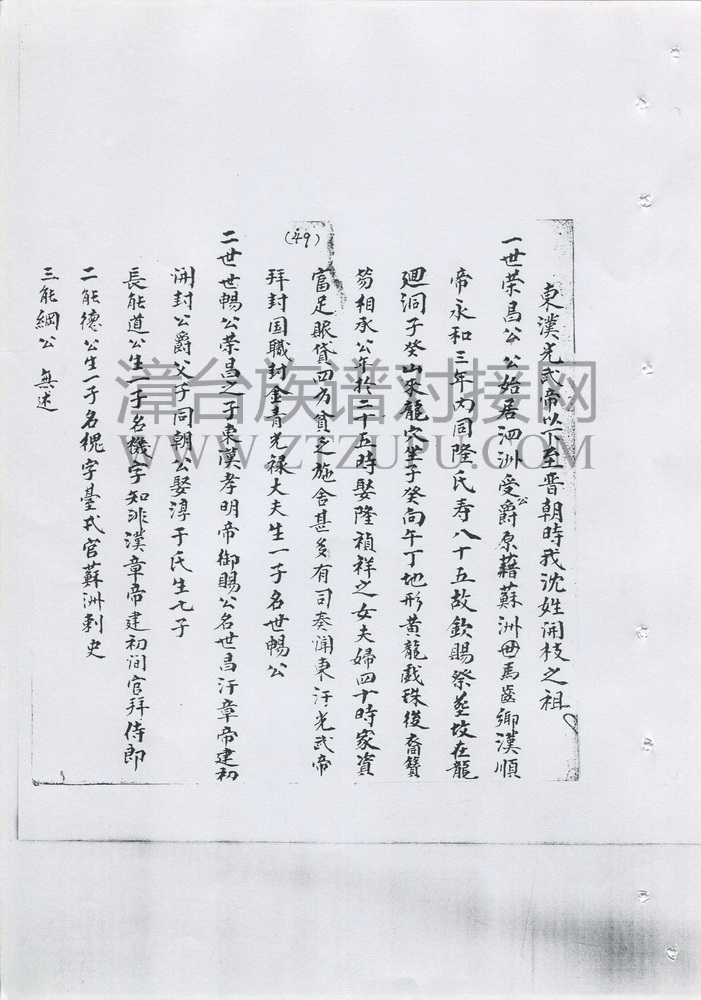 東漢光武帝以下至晋朝時我沈姓開枝之祖
一世荣昌公 公始居泗洲受公爵原藉蘇洲毋馬崙鄉漢順
帝永和三年內同隆氏寿八十五故欽賜祭塟坟在龍
廻洞子癸山來龍穴坐子癸向午丁地形黄龍戯珠後裔簪
笏相承公年於二十五時娶隆禎祥之女夫婦四十時家資
富足賑貸四方貧乏施舍甚多有司奏闻東汗光武帝
(49)
拜封国職封金青光禄大夫生一子名世暢公
二世世暢公荣昌之子東漢孝明帝御賜公名世昌汗章帝建初
開封公爵父子同朝公娶淳于氏生七子
長能道公生一子名機字知非漢章帝建初间官拜侍郎
二能德公生一子名槐字臺弐官蘇洲刺史
三能綱公 無述
漳台族谱对接网
WWW.ZTZUPU.COM